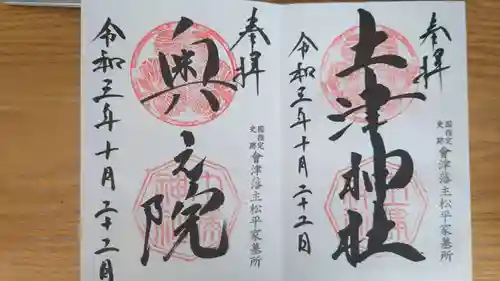 奉拝
土津神社
国指定
史跡
會津藩主松平家墓所
令和三年十月二十二日
奉拝
奥之院
国指定
史跡
會津藩主松平家墓所
令和三年十月二十二日